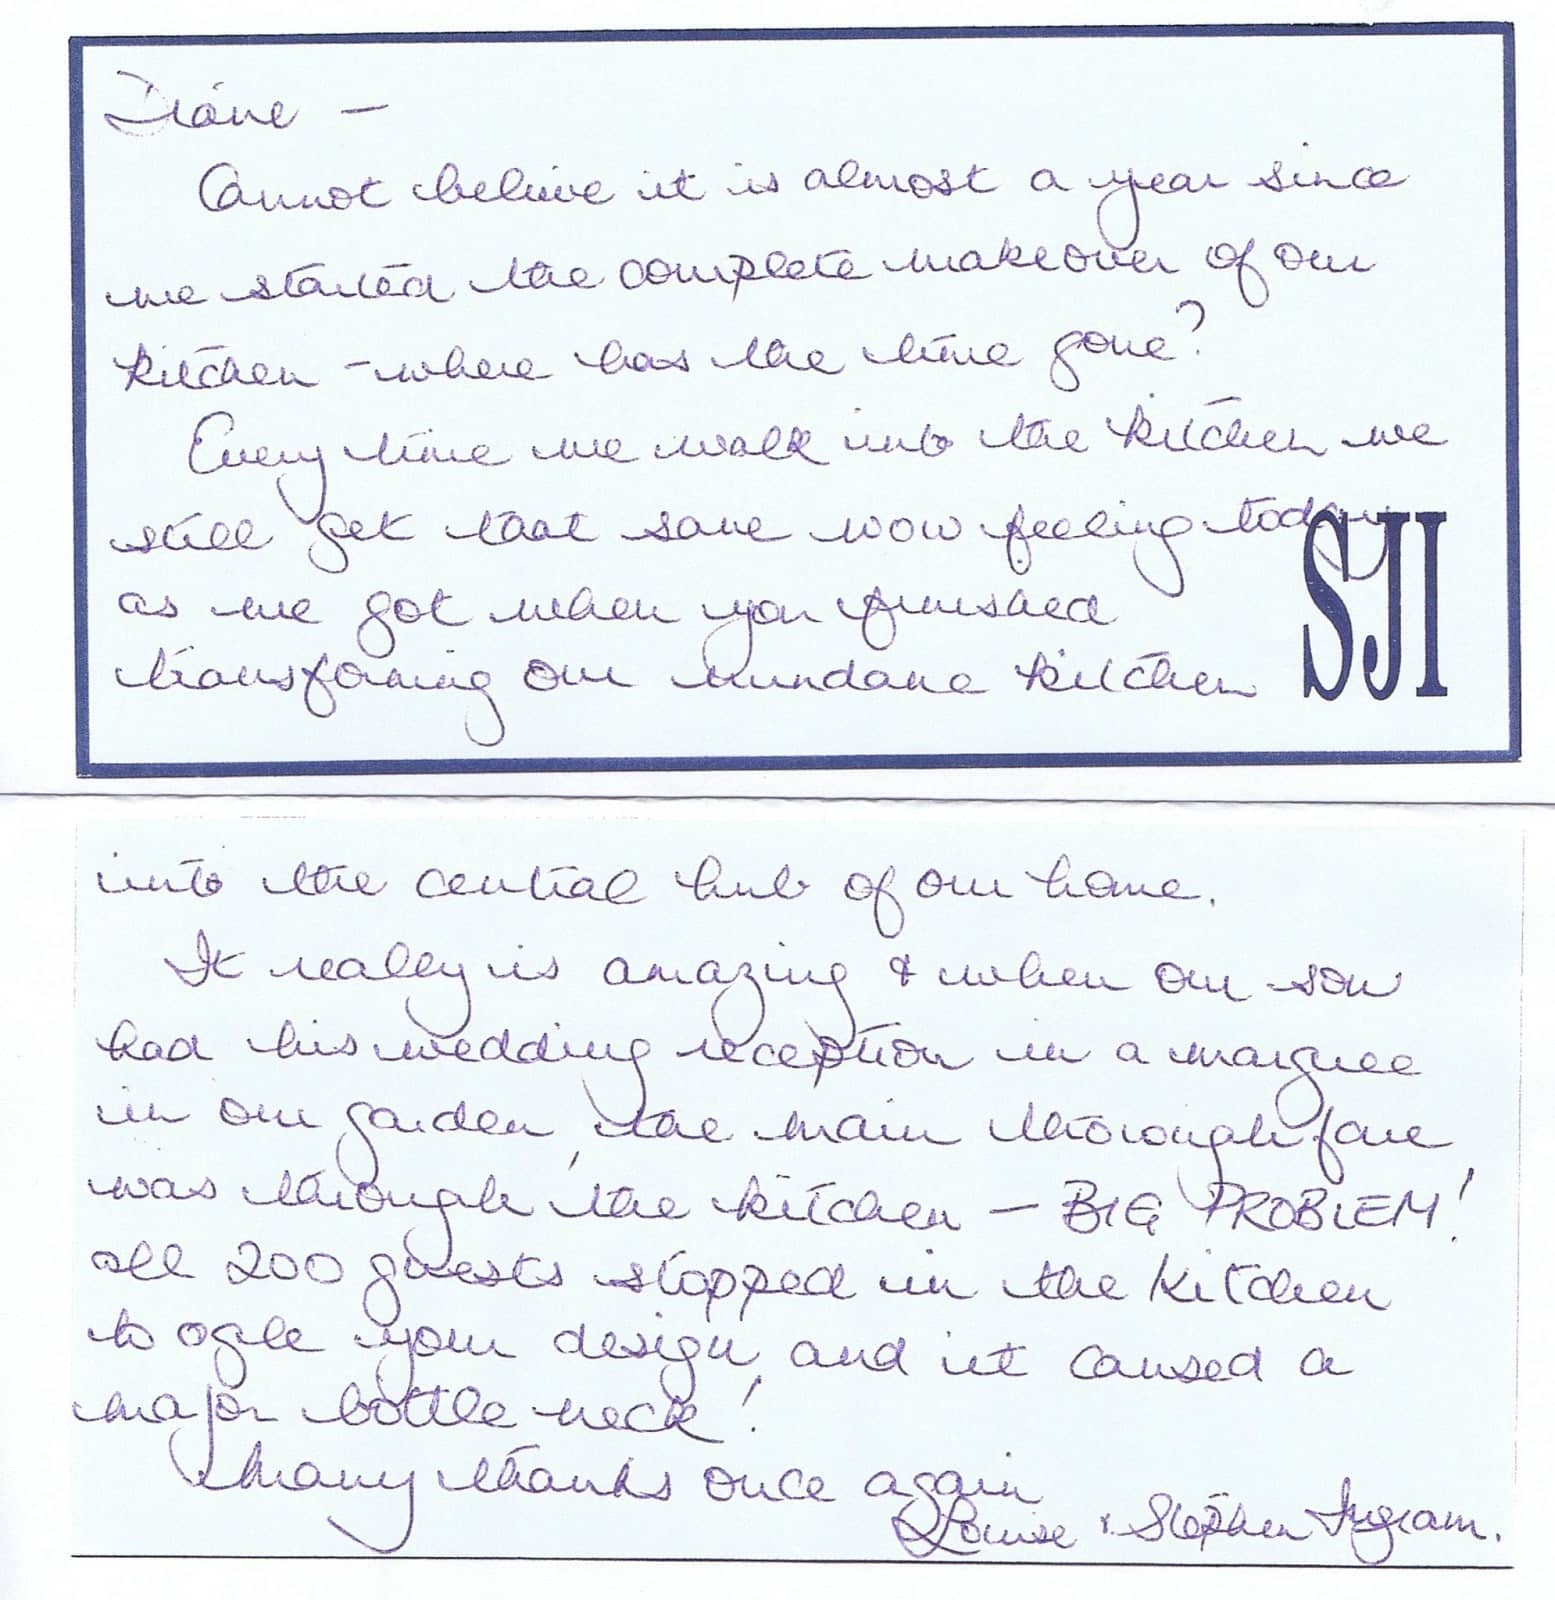 Diane –
Cannot believe it is almost a year since
we started the complete makeover of our
kitchen – where has the time gone?
Every time we walk into the kitchen we
still get that same wow feeling today
as we got when you finished
transforming our mundane kitchen
SJI
into the central hub of our home.
It really is amazing & when our son
had his wedding reception in a marquee
in our garden, the main thorough fare
was through the kitchen – BIG PROBLEM!
all 200 guests stopped in the kitchen
to ogle your design, and it caused a
major bottle neck!
Many thanks once again
Louise & Stephen Ingram.